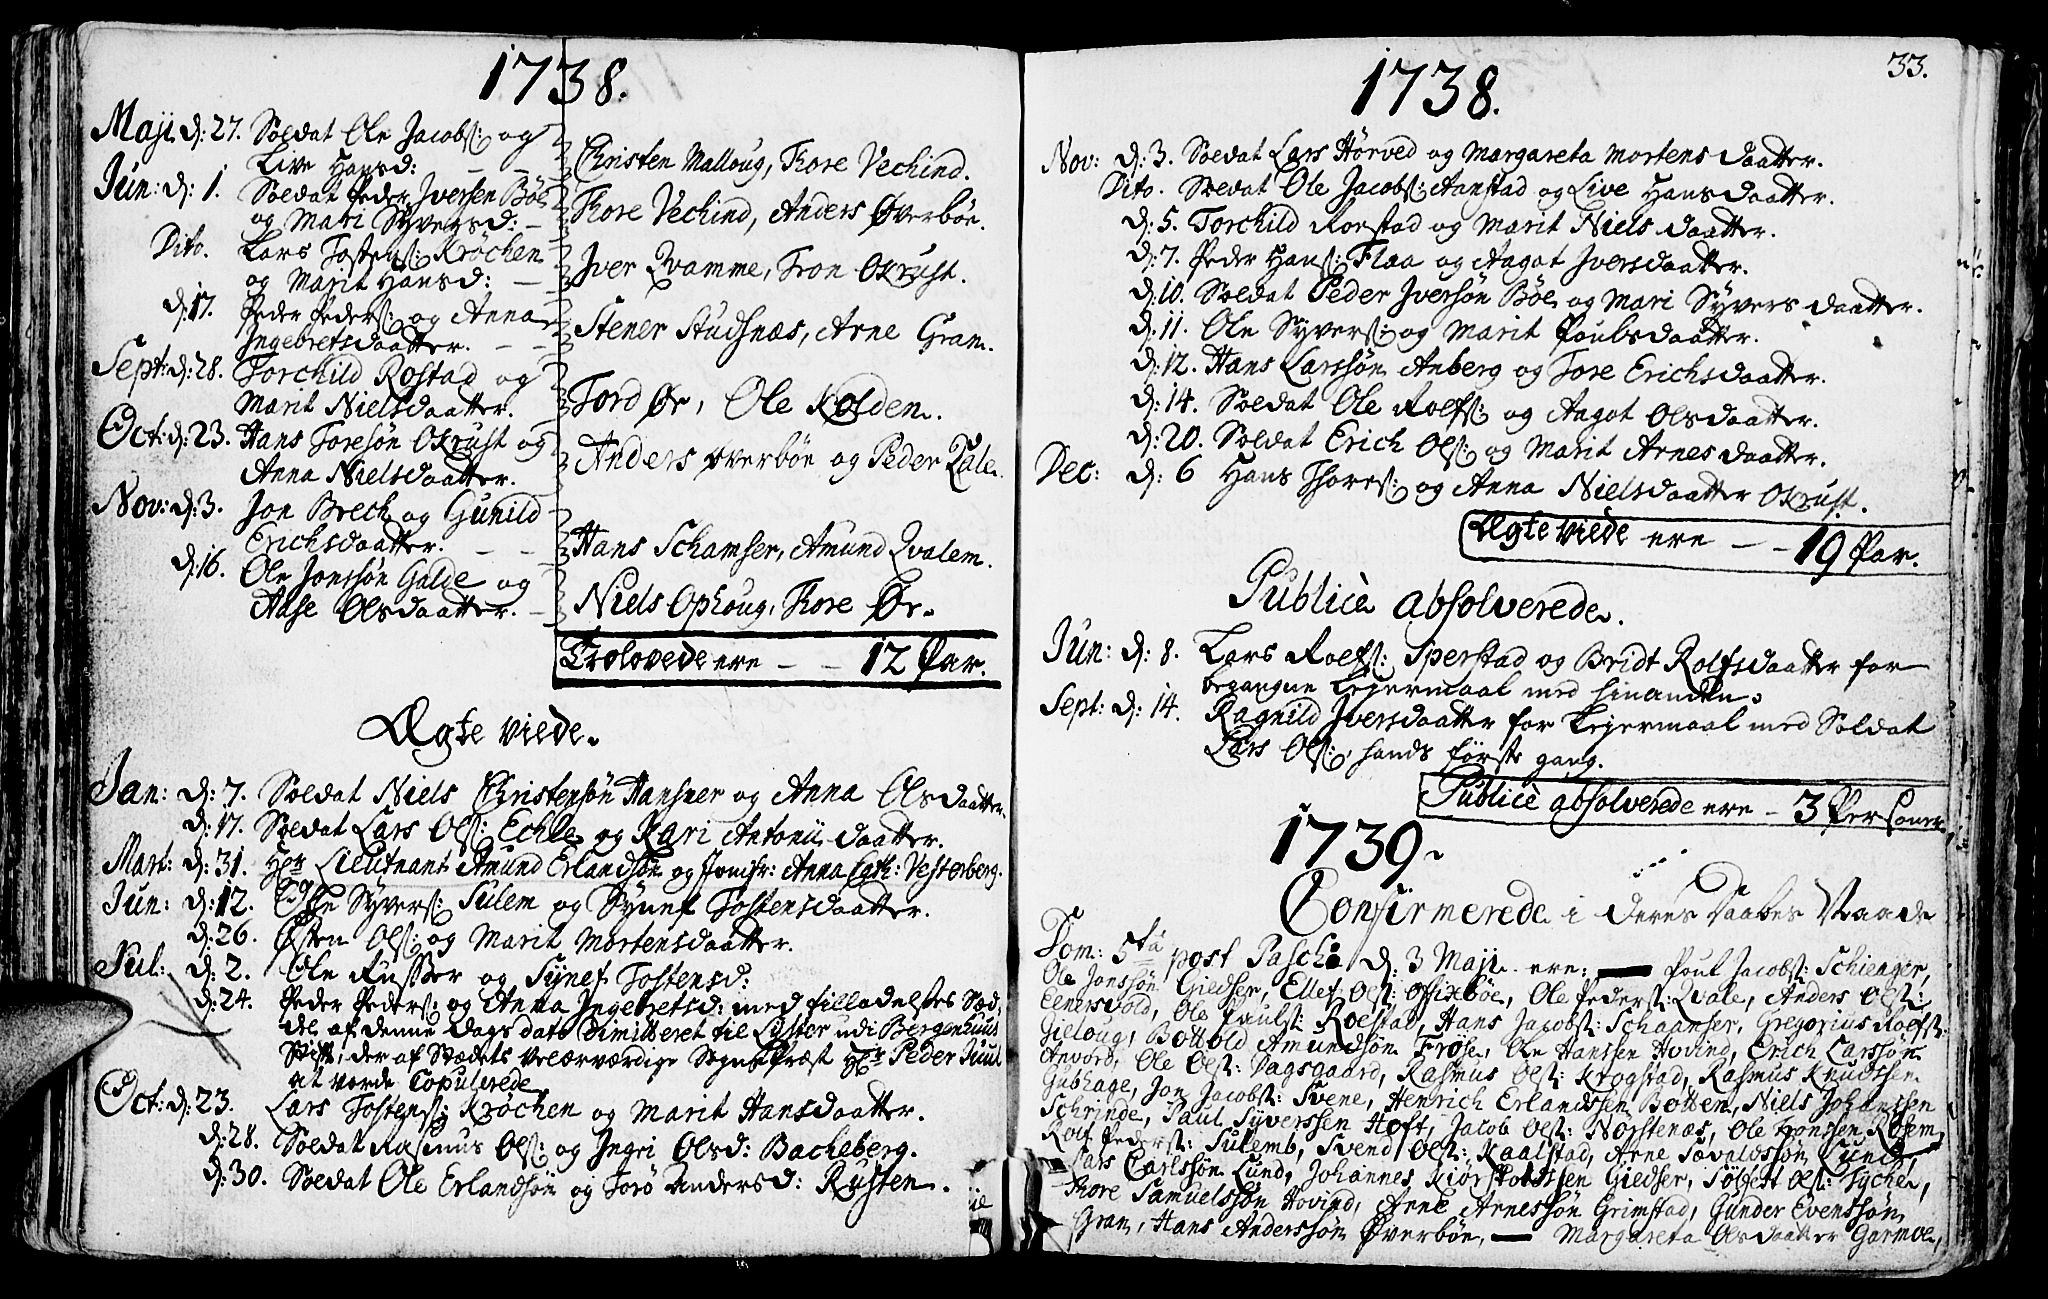 1738.
Maji d: 27. Soldat Ole Jacobs: og
Live Hansd: — —
Christen Malloug, Thore Vechind.
Jun: d: 1. Soldat Peder Iversen Böe
og Mari Syversd: —
Thore Vechind, Anders Øverböe.
Dito. Lars Tostens: Kröchen
og Marit Hansd: —
Iver Qvamme, Tron Okrust.
d: 17. Peder Peders: og Anna
Ingebretsdaatter. — —
Stener Studsnæs, Arne Gram.
Sept: d: 28. Torchild Rostad og
Marit Nielsdaatter.
Tord Ør, Ole Kolden.
Oct: d: 23. Hans Toresön Okrust og
Anna Nielsdaatter.
Anders Øverböe og Peder Qale.
Nov: d: 3. Jon Brech og Gunild
Erichsdaatter. — —
Hans Schamser, Amund Qvalem.
d: 16. Ole Jonssön Galde og
Aase Olsdaatter. —
Niels Ophoug, Thore Ør.
Trolovede ere — — 12 Par.
Ægte viede.
Jan: d: 7. Soldat Niels Christensön Hansner og Anna Olsdaatter.
d: 17. Soldat Lars Ols: Echle og Kari Antonii daatter.
Mart: d: 31. Hr Lieutnant Amund Erlandsön og Jomfr: Anna Cath: Vesterberg.
Jun: d: 12. Ole Syvers: Sulem og Synef Tostensdaatter.
d: 26. Østen Ols: og Marit Mortensdaatter.
Jul: d: 2. Ole Russer og Synef Tostensd:
d: 24. Peder Peders: og Anna Ingebretsd: med tilladelses Sed-
del af denne Dags dato dimitteret til Lyster udi Bergenhuus
Stift, der af Stædets velærværdige Sogne Præst Hr Peder Juul
at vorde Copulerede
Oct: d: 23. Lars Tostens: Kröchen og Marit Hansdaatter.
d: 28. Soldat Rasmus Ols: og Ingri Olsd: Bacheberg.
d: 30. Soldat Ole Erlandsön og Torö Andersd: Rusten.
33.
1738.
Nov: d: 3. Soldat Lars Hörved og Margareta Mortens daatter.
Dito. Soldat Ole Jacobs: Aanstad og Live Hansdaatter.
d: 5. Torchild Roestad og Marit Niels daatter.
d: 7. Peder Hans: Flaa og Aagot Iversdaatter.
d: 10. Soldat Peder Iversön Böe og Mari Syvers daatter.
d: 11. Ole Syvers: og Marit Poulsdaatter.
d: 12. Hans Larssön Anberg og Tore Erichsdaatter.
d: 14. Soldat Ole Rolfs: og Aagot Olsdaatter.
d: 20. Soldat Erich Ols: og Marit Arnes daatter.
Dec: d: 6 Hans Thores: og Anna Nielsdaatter Okrust.
Ægte viede ere — — 19 Par.
Publicè absolverede.
Jun: d: 8. Lars Rolfs: Sperstad og Bridt Rolfsdaatter for
begangne Lejermaal med hinanden.
Sept: d: 14. Ragnild Iversdaatter for Lejermaal med Soldat
Lars Ols:, hands första gang.
Publicè absolverede ere — 3 Personer
1739.
Confirmerede i deres Daabes Naade
Dom: 5ta post Pascha d: 3 Maji ere: — Poul Jacobs: Schienger,
Ole Jonssön Giedser, Ellef Ols: Offixböe, Ole Peders: Qvale, Anders Ols:
Elnersvold, Ole Pauls: Roestad, Hans Jacobs: Schaanser, Gregorius Roefs:
Gieloug, Bottold Amundsön Frose, Ole Hanssen Hovind, Erich Larssön
Anvord, Ole Ols: Dagsgaard, Rasmus Ols: Krogstad, Rasmus Knudssen
Gubhage, Jon Jacobs: Svene, Henrich Erlandssen Botten, Niels Johanssen
Schrinde, Paul Syverssen Hoft, Jacob Ols: Norstenæs, Ole Tronssen Rosem,
Rolf Peders: Sulemb, Svend Ols: Kaalstad, Arne Tovaldssön Sund,
Lars Carlssön Lund, Johannes Kiörstolssen Giedser, Sölfest Ols: Sychel,
Thore Samuelssön Hovind, Arne Arnessön Grimstad, Gunder Evenssön
Gram, Hans Anderssön Øverböe, — Margareta Olsdaatter Garmoe,